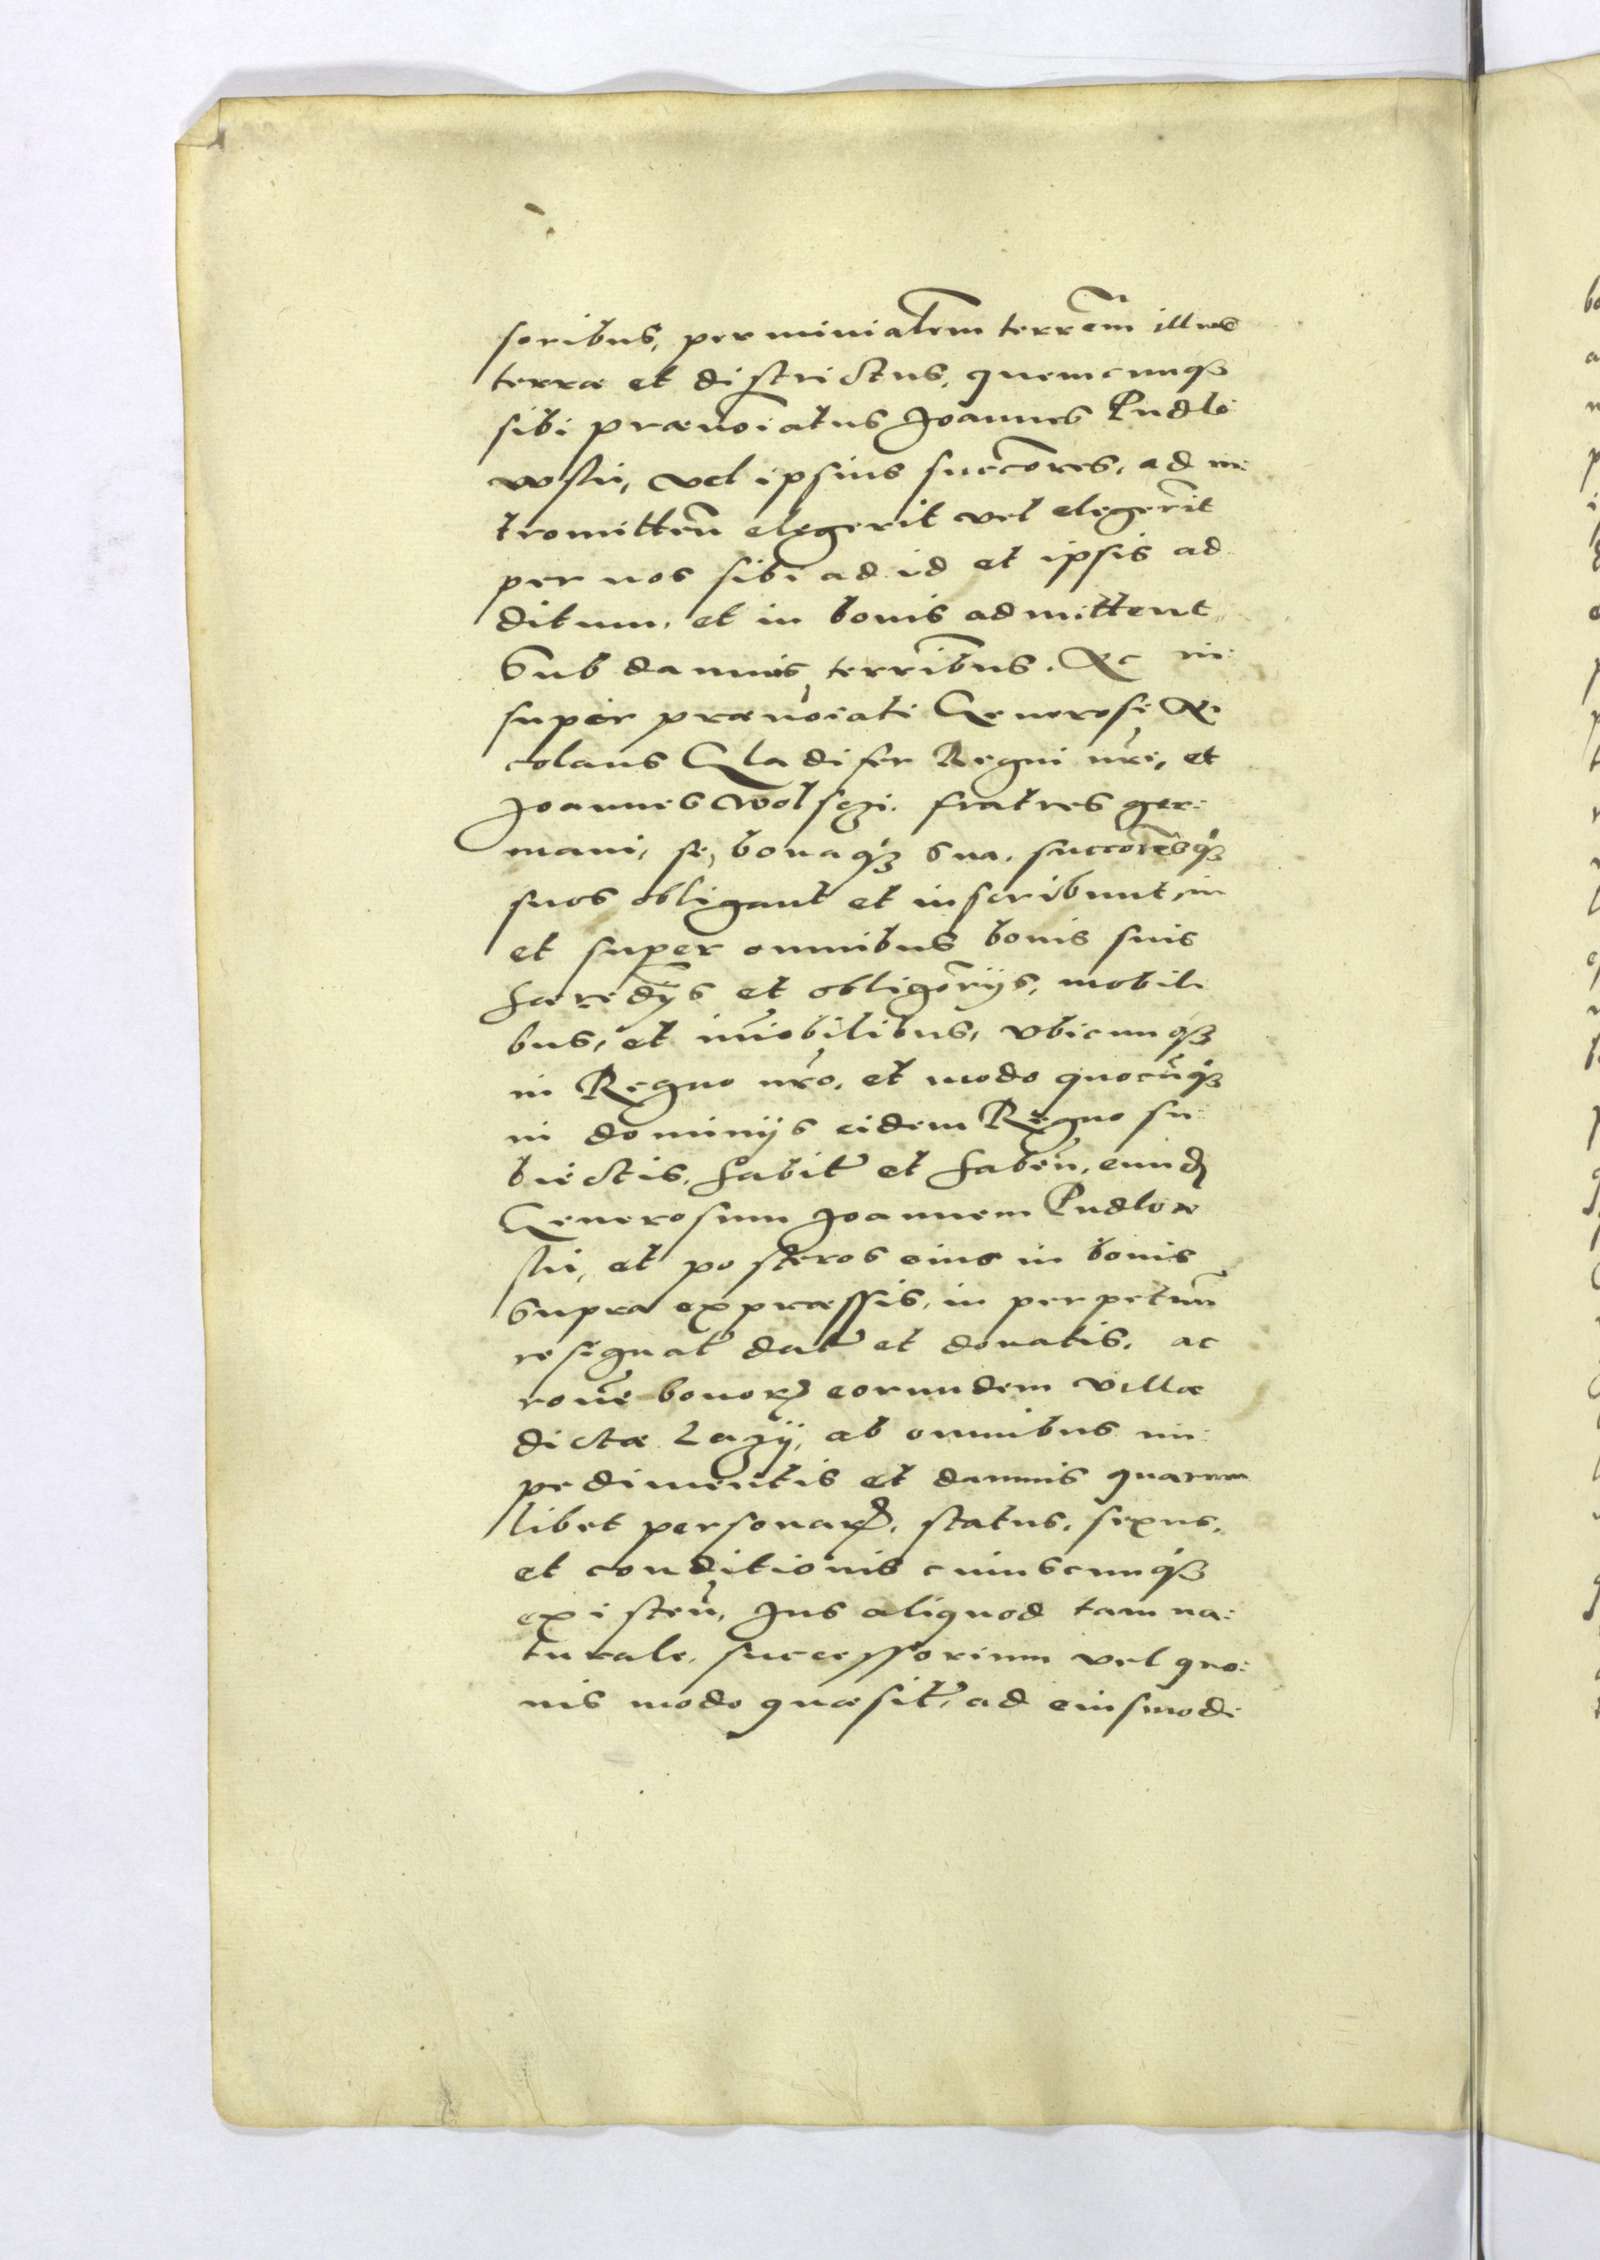 soribus, per ministlem terrem illius
terræ et districtus, quemcunqȝ
sibi prænoiatus Joannes Pudlo
wski, vel ipsius succores, ad in:
tromitten elegerit vel elegerit
per nos sibi ad id et ipsis ad
ditum, et in bonis admittent
Sub damnis terribus. &c in:
super prænoiati Generosi Ni
colaus Gladifer Regni nri, et
Joannes Wolsczi, fratres ger:
mani, se, bonaqȝ sua, succoresqȝ
suos obligant et inscribunt, in
et super omnibus bonis suis
hæredys et obligoryis, mobili
bus, et imobilibus, vbicunqȝ
in Regno nro, et modo quocuqȝ
in dominijs eidem Regno su:
biectis, habit et haben, eund
Generosum Joannem Pudlow
ski, et posteros eius in bonis
supra expræssis, in perpetuu
resignat dat et donatis, ac
rone bonor eorundem villæ
dictæ Lazy, ab omnibus im:
pedimentis et damnis quarum
libet personar, status, sexus,
et conditionis cuiuscunqȝ
existen, Jus aliquod tam na:
turale, successorium vel quo:
uis modo quæsit, ad eiusmodi